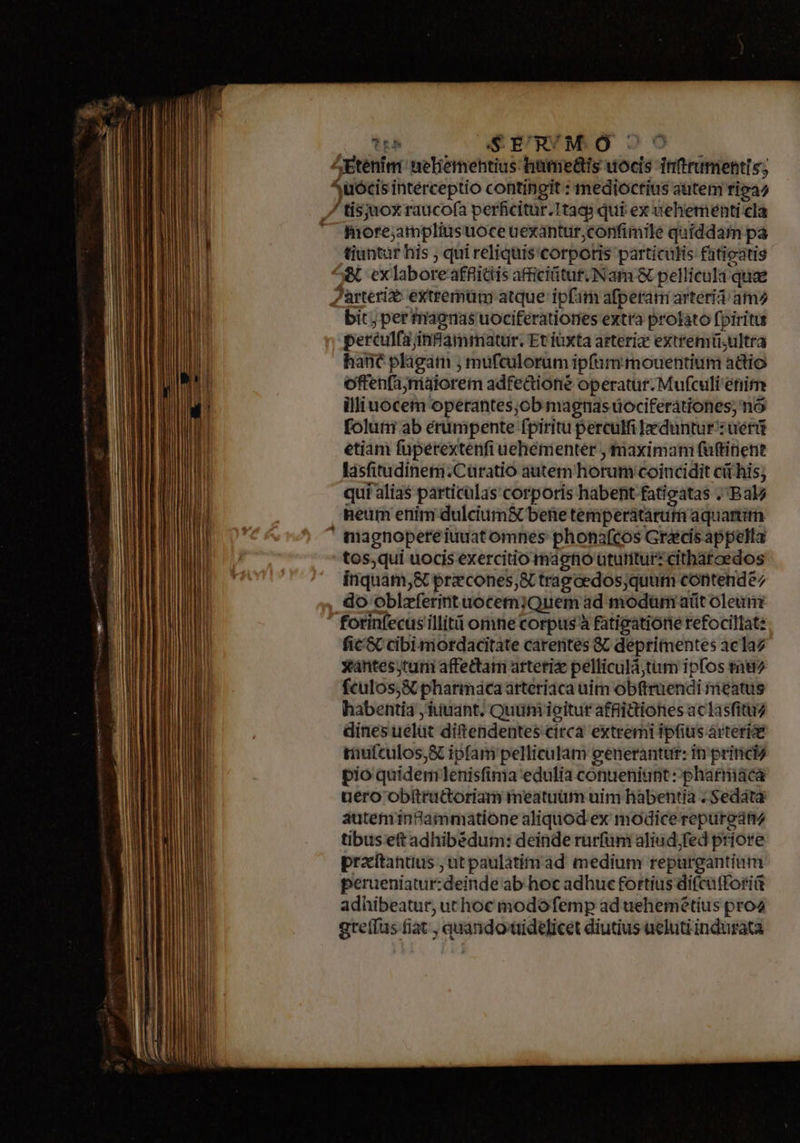 SERMO
Etenim uehementius humectis uocis instrumentis,
uocis interceptio contingit: mediocrius autem riga⸗
tis, uox raucosa perficitur. Itaq; qui ex uehementi cla
more, amplius uoce uexantur, consimile quiddam pa
tiuntur his, qui reliquis corporis particulis fatigatis
& ex labore afflictis afficiūtur. Nam & pellicula quæ
arteriæ extremum atque ipsam asperam arteriā am⸗
bit, per magnas uociferationes extra prolato spiritu
perculsa, inflammatur. Et iuxta arteriæ extremū, ultra
hanc plagam, musculorum ipsam mouentium actio
offensa, maiorem adfectionē operatur. Musculi enim
illi uocem operantes, ob magnas uociferationes, nō
solum ab erumpente spiritu perculsi læduntur: uerū
etiam superextensi uehementer, maximam sustinent
lassitudinem. Curatio autem horum coincidit cū his,
qui alias particulas corporis habent fatigatas. Bal⸗
neum enim dulcium & bene temperatarum aquarum
magnopere iuuat omnes phonascos Græcis appella
tos, qui uocis exercitio magno utuntur: citharœdos
inquam, & præcones, & tragœdos, quum contendē⸗
do oblæserint uocem. Quem ad modum aūt oleum
forinsecus illitū omne corpus à fatigatione refocillat:
sic & cibi mordacitate carentes & deprimentes ac la⸗
xantes, tum affectam arteriæ pelliculā, tum ipsos mu⸗
sculos, & pharmaca arteriaca uim obstruendi meatus
habentia, iuuant. Quum igitur afflictiones ac lassitu⸗
dines uelut distendentes circa extremi ipsius arteriæ
musculos, & ipsam pelliculam generantur: in princi⸗
pio quidem lenissima edulia conueniunt: pharmaca
uero obstructoriam meatuum uim habentia. Sedata
autem inflammatione aliquod ex modice repurgan⸗
tibus est adhibēdum: deinde rursum aliud, sed priore
præstantius, ut paulatim ad medium repurgantium
perueniatur: deinde ab hoc adhuc fortius discussoriū
adhibeatur, ut hoc modo semp ad uehemētius pro⸗
gressus fiat, quando uidelicet diutius ueluti indurata